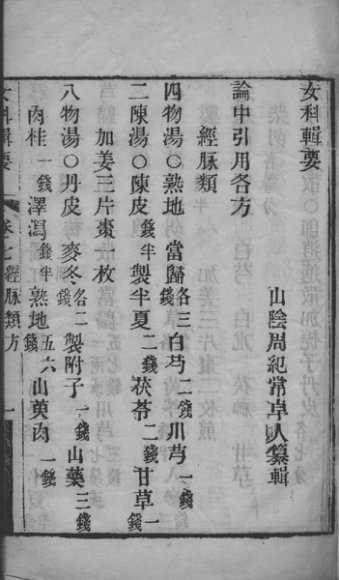 女科輯要
山陰周紀常卓人纂輯
論中引用各方
經脉類
四物湯○熟地 當歸各三錢白芍二錢川芎一錢
二陳湯○陳皮錢半製半夏二錢茯苓二錢甘草一錢
加姜三片棗二枚
八物湯○丹皮 麥冬各二錢製附子一錢山藥三錢
肉桂一錢澤瀉錢半熟地五六錢山萸肉一錢
女科輯要 卷七經脉類方 一